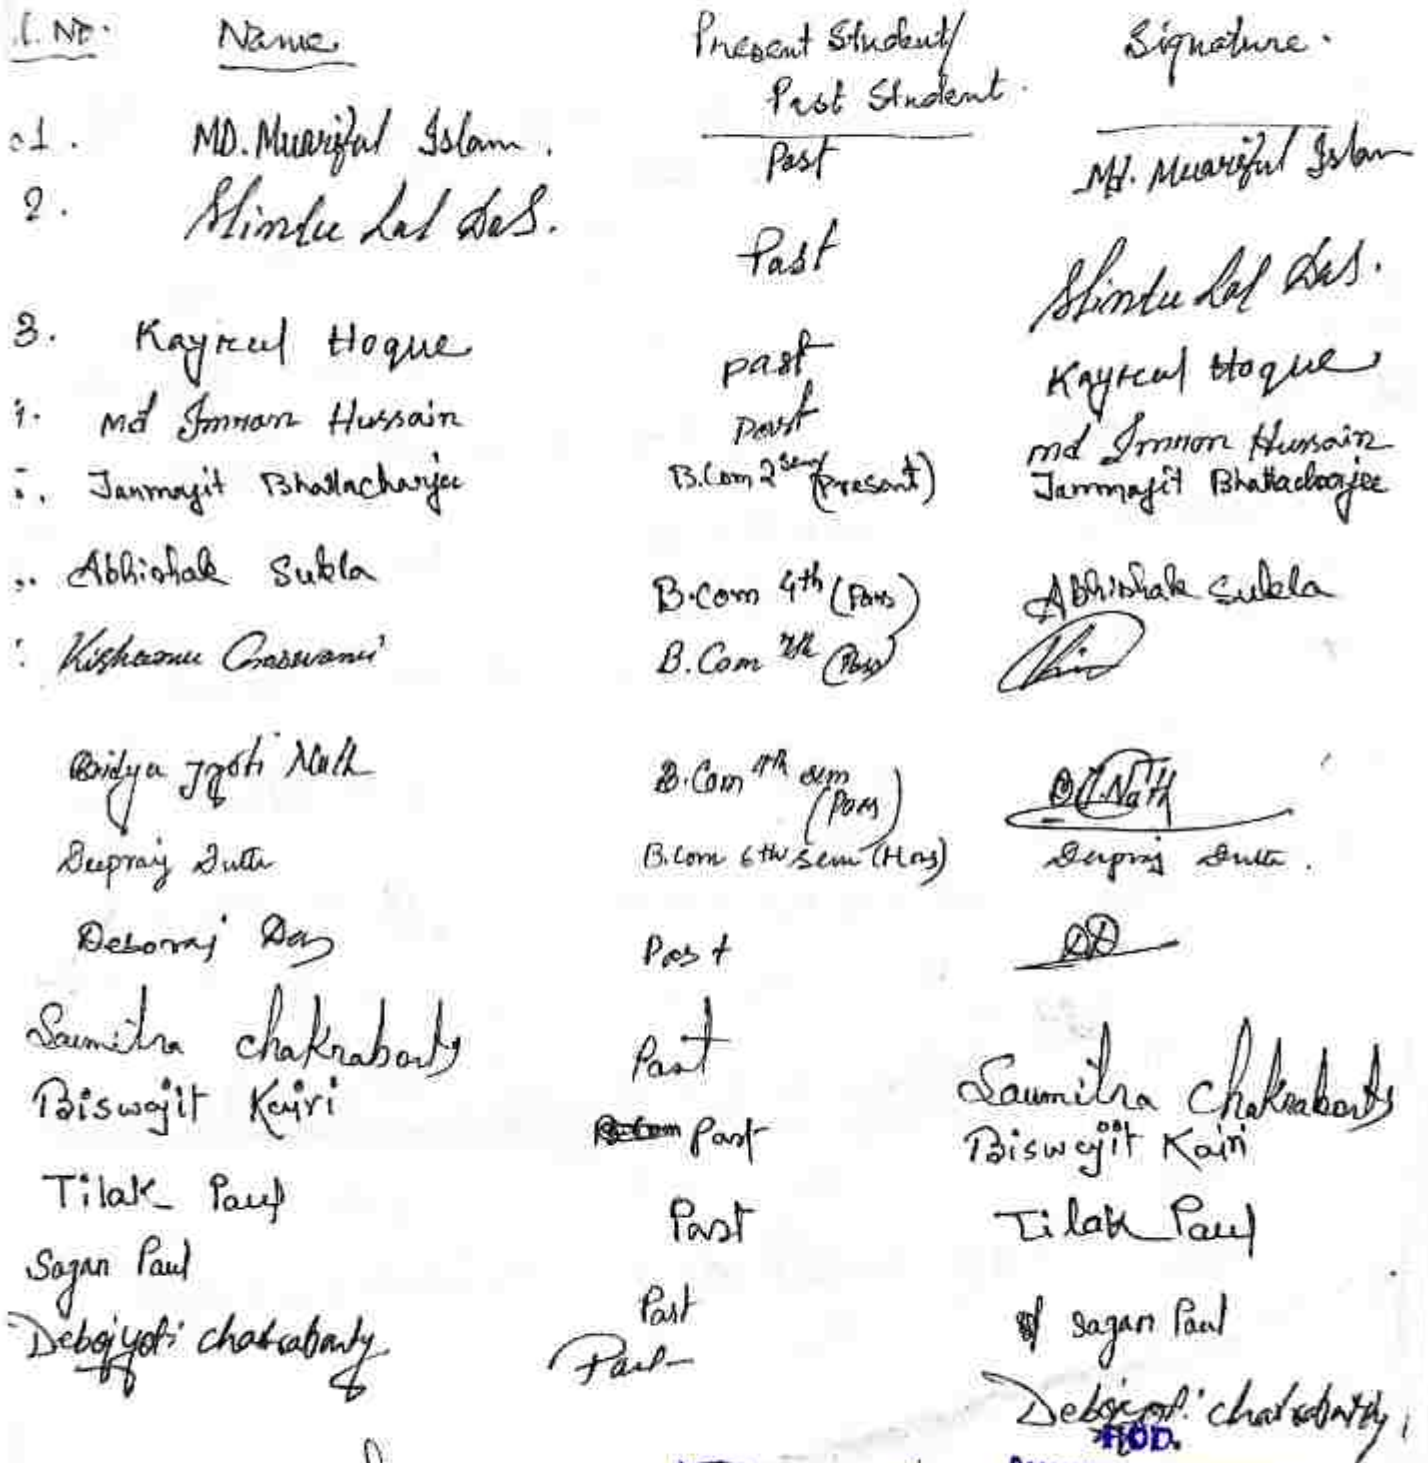 l. No. Name Present Student/ Signature.
Past Student.
01. MD. Muariful Islam. Past Md. Muariful Islam
2. Lal Das. Past Lal Das.
3. Kayreul Hoque Past Kayreul Hoque
md Imran Hussain Past md Imran Hussain
Tanmajit Bhattacharjee B.Com 2 sem (Present) Tanmajit Bhattacharjee
Abhishak Sukla B.Com 4th (Pass) Abhishak Sukla
Goswami B.Com (Pass)
Bidya Jyoti Nath B.Com sem (Pass) Nath
Deepraj Dutta B.Com 6th Sem (Hons) Deepraj Dutta.
Deboraj Das Past DD
Saumitra Chakraborty Past Saumitra Chakraborty
Biswajit Kairi Past Biswajit Kairi
Tilak Paul Past Tilak Paul
Sagan Paul Past Sagan Paul
Debojyoti Chakrabarty Past Debojyoti Chakrabarty
HOD.